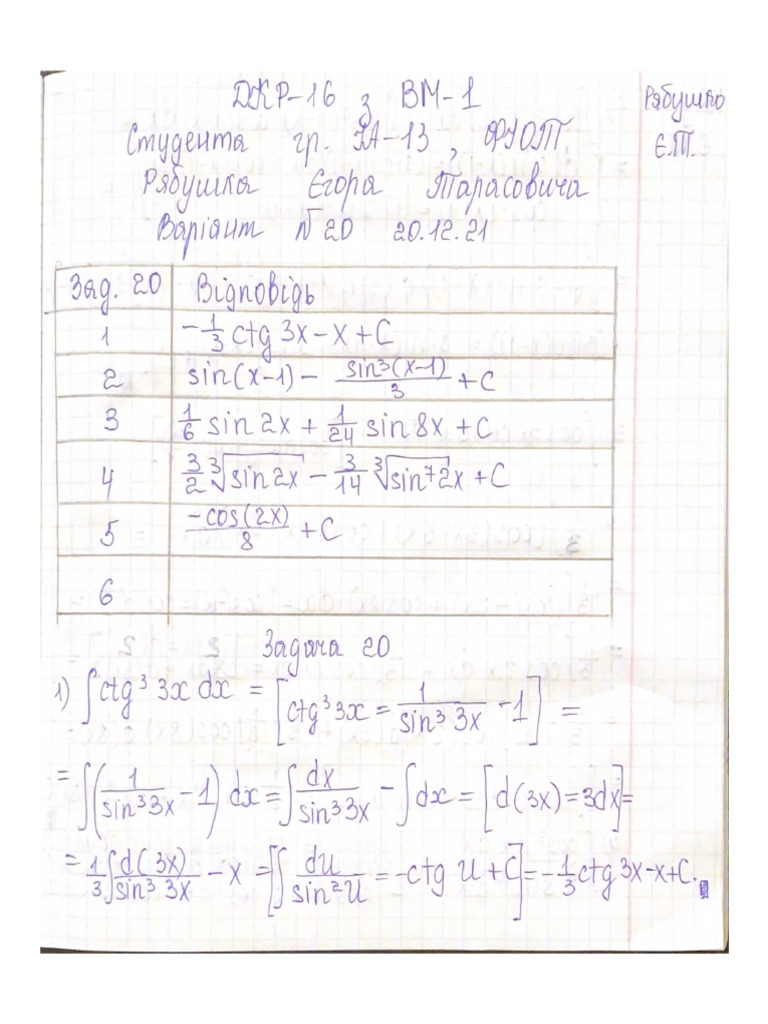 ДКР-16 з ВМ-1
Рябушко
Є.Т.
Студента гр. ІА-13, ФІОТ
Рябушка Єгора Тарасовича
Варіант №20 20.12.21
Зад. 20 Відповідь
1 -1/3 ctg 3x - x + C
2 sin(x-1) - sin³(x-1)/3 + C
3 1/6 sin 2x + 1/24 sin 8x + C
4 3/2 ∛(sin 2x) - 3/14 ∛(sin⁷ 2x) + C
5 -cos(2x)/8 + C
6
Задача 20
1) ∫ctg³ 3x dx = [ctg³ 3x = 1/(sin³ 3x) - 1] =
= ∫(1/(sin³ 3x) - 1) dx = ∫dx/(sin³ 3x) - ∫dx = [d(3x) = 3dx] =
= 1/3 ∫d(3x)/(sin³ 3x) - x = [∫du/(sin² u) = -ctg u + C] = -1/3 ctg 3x - x + C.